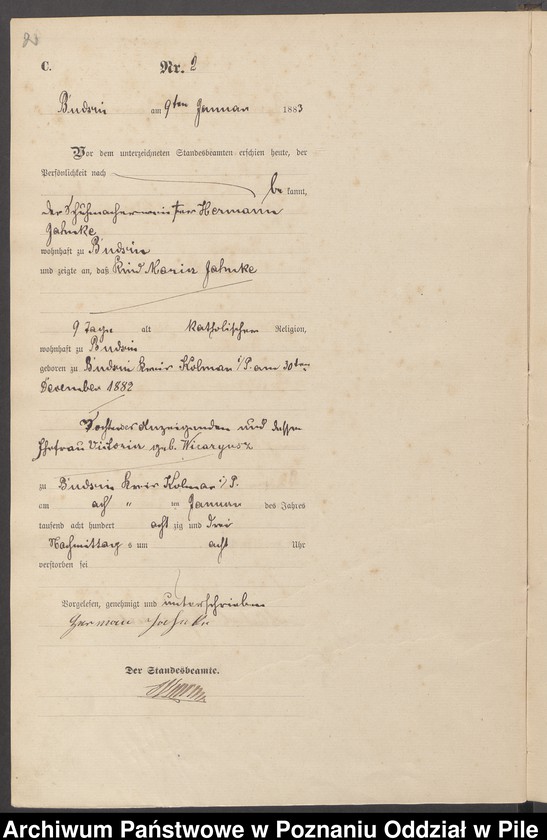 2
C. Nr. 2
Budsin am 9ten Januar 1883
Vor dem unterzeichneten Standesbeamten erschien heute, der
Persönlichkeit nach
be kannt,
der Schuhmachermeister Hermann
Jahnke
wohnhaft zu Budsin
und zeigte an, daß Kind Maria Jahnke
9 Tage alt katholischen Religion,
wohnhaft zu Budsin
geboren zu Budsin Kreis Kolmar i/P. am 30ten
Dezember 1882
Tochter des Anzeigenden und dessen
Ehefrau Viktoria geb.
zu Budsin Kreis Kolmar i/P.
am acht " im Januar des Jahres
tausend acht hundert acht zig und drei
Nachmittag s um acht Uhr
verstorben sei
Vorgelesen, genehmigt und unterschrieben
Herman Jahnke
Der Standesbeamte.
Archiwum Państwowe w Poznaniu Oddział w Pile